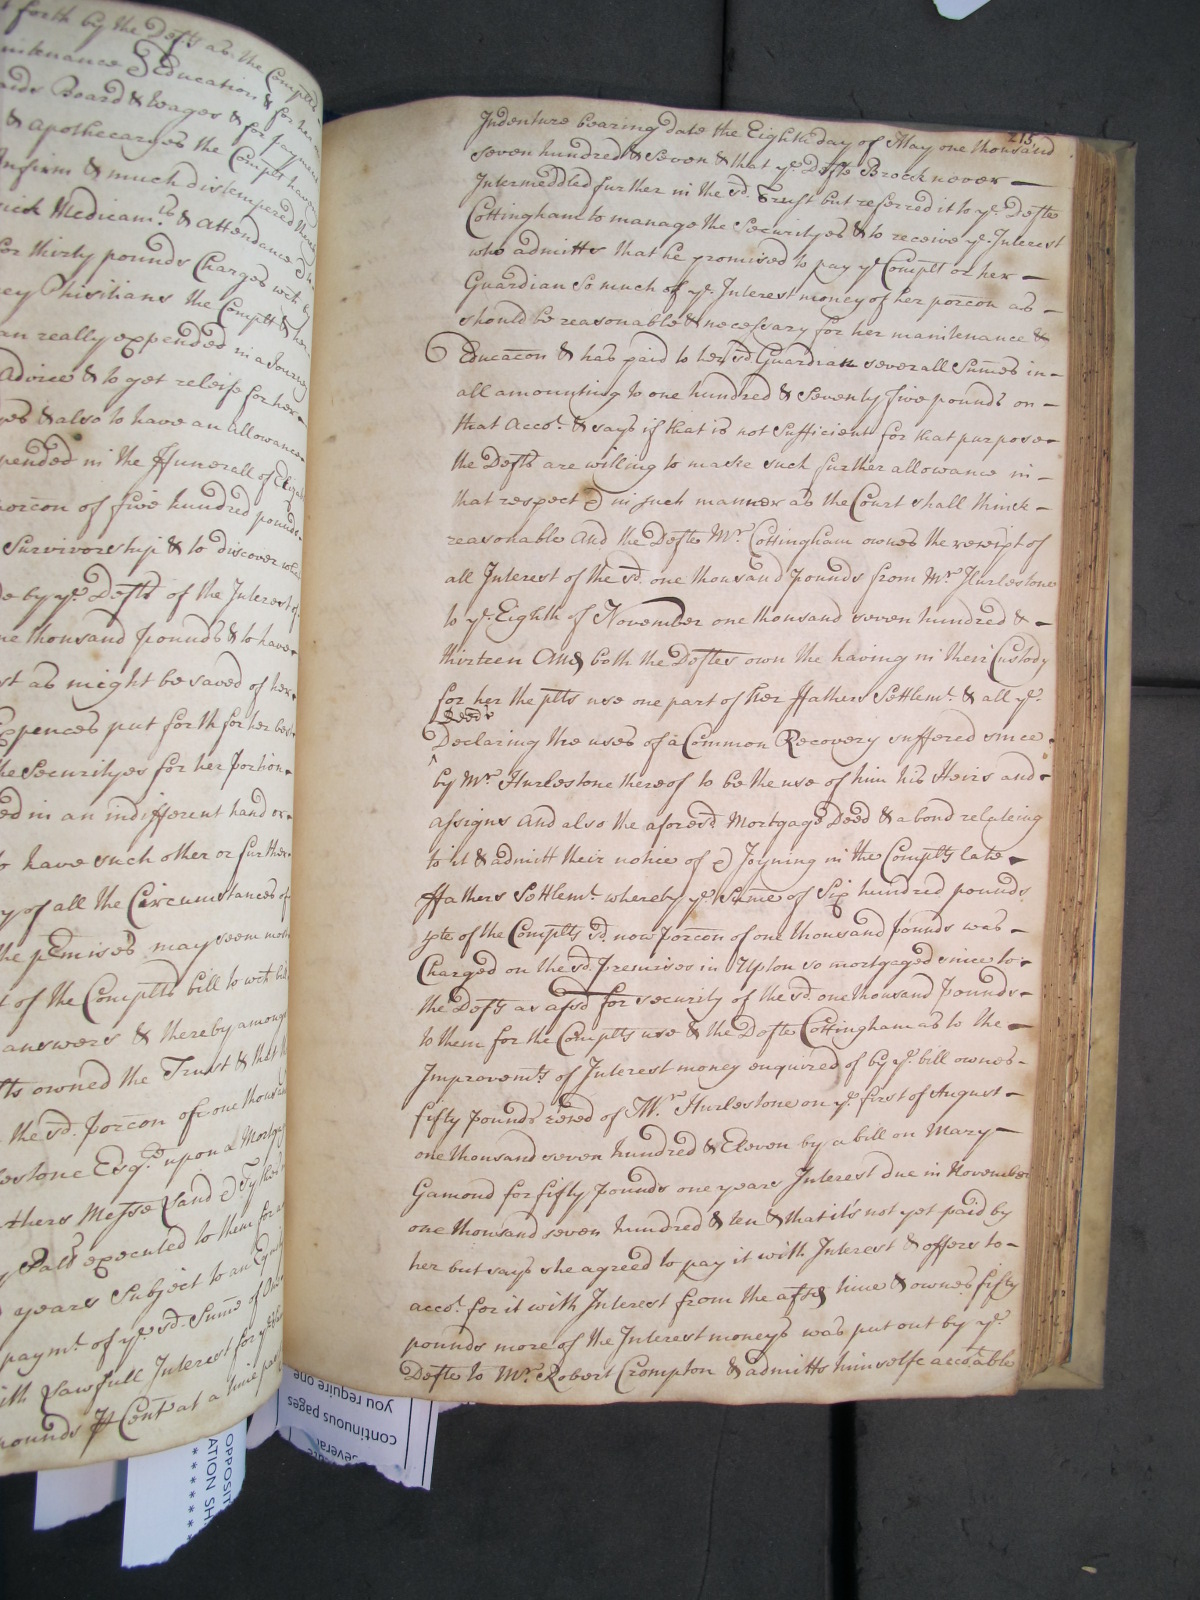 t forth by the Defts as the Complts
maintenance & Education & for her
aids Board & Wages & for paymen
& Apothecaryes the Complt having
Infirm & much distempered
nick Medicam.ts & Attendance
for thirty pounds Charges with
ey Phisitians the Complt & her
an really expended in a Journey
Advice & to get releife for her
es & also to have an allowance
pended in the ffunerall of Eliz
porcon of five hundred pounds
Survivorship & to discover
e by ye Defts of the Interest of
ne thousand pounds & to have
st as might be saved of her
Expences put forth for her best
he Securityes for her Portion
ed in an indifferent hand or
o have such other or further
y of all the Circumstances of
the pmises may seem
t of the Complts bill to wch
answers & thereby amongst
fts owned the Trust & that
the sd. porcon of one thousand
lestone Esq.r upon a Mortgage
thers Messe Land & Tythe
executed to them for
years Subject to an
paymt. of ye sd. Sume of One
ith Lawfull Interest for ye
pounds p Cent at a time
215
Indenture bearing date the Eighth day of May one thousand
seven hundred & Seven & that ye Defte Brock never
Intermeddled further in the sd. Trust but referred it to ye Defte
Cottingham to manage the Securityes & to receive ye Interest
who admitts that he promised to pay ye Complt or her
Guardian So much of ye Interest money of her porcon as
should be reasonable & necessary for her maintenance &
Educacon & has paid to her sd Guardian severall Sumes in
all amounting to one hundred & Seventy five pounds on
that Acco.t & says if that is not Sufficient for that purpose
the Defts are willing to make such further allowance in
that respect & in such manner as the Court shall thinck
reasonable And the Defte Mr. Cottingham ownes the receipt of
all Interest of the sd. one thousand pounds from Mr. Hurlestone
to ye Eighth of November one thousand seven hundred &
thirteen And both the Deftes own the having in their Custody
for her the plts use one part of her ffathers Settlemt. & all ye
Deeds
Declaring the uses of a Common Recovery suffered since
^ by Mr Hurlestone thereof to be the use of him his Heirs and
assigns And also the aforesd Mortgage Deed & a bond relateing
to it & admitt their notice of & Joyning in the Complts late
ffathers Settlemt. whereby ye Sume of Six hundred pounds
pte of the Complts sd. now porcon of one thousand pounds was
Charged on the sd. Premises in Upton so mortgaged since to
the Defts as afsd for security of the sd. one thousand pounds
to them for the Complts use & the Defte Cottingham as to the
Improvemts of Interest money enquired of by ye bill ownes
fifty pounds reced of Mr. Hurlestone on ye first of August
one thousand seven hundred & Eleven by a bill on Mary
Gamond for fifty pounds one years Interest due in November
one thousand seven hundred & ten & that it's not yet paid by
her but says she agreed to pay it with Interest & offers to
acco.t for it with Interest from the afsd time & ownes fifty
pounds more of the Interest moneys was put out by ye
Defte to Mr. Robert Crompton & admitts himselfe accotable
you require one
continuous pages
several
OPPOSIT
ATION SH
* * * * * *